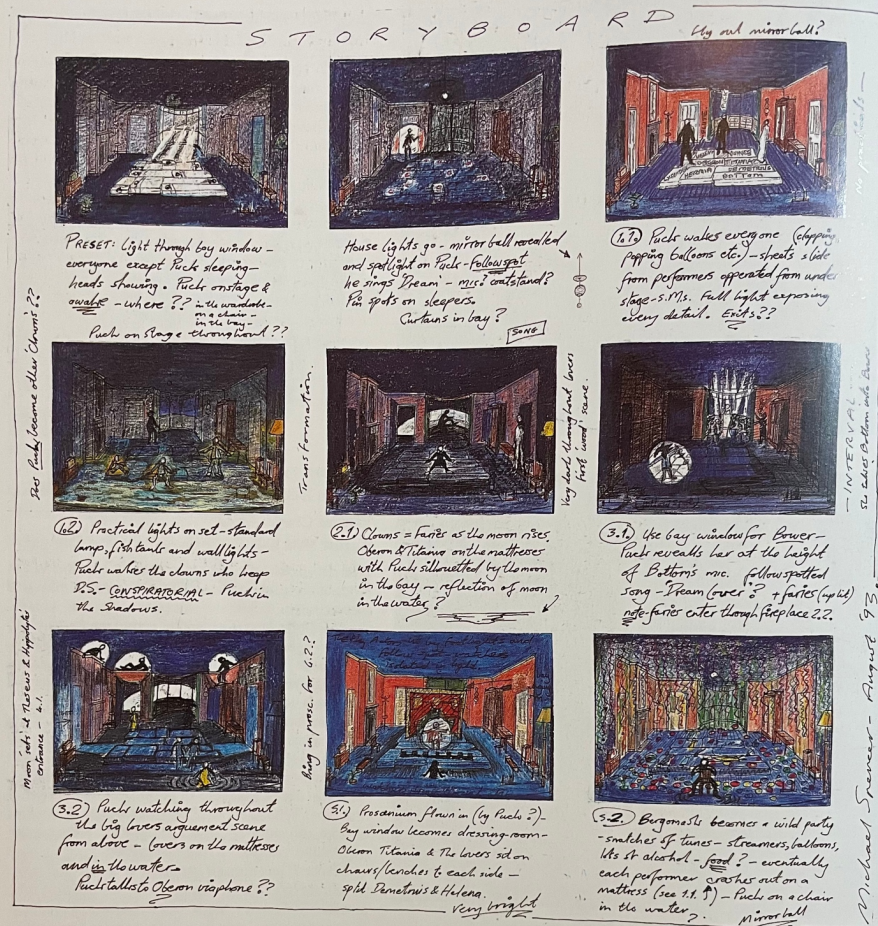 STORYBOARD
Fly out mirror ball?
PRESET: Light through bay window –
everyone except Puck sleeping –
heads showing. Puck onstage &
awake – where?? in the wardrobe –
on a chair –
in the bay –
Puck on stage throughout??
House lights go – mirror ball revealed
and spotlight on Puck – followspot
he sings Dream – mic? coatstand?
Pin spots on sleepers.
Curtains in bay?
SONG
HERMIA
DEMETRIUS
BOTTOM
1.1. Puck wakes everyone (clapping
popping balloons etc.) – sheets slide
from performers opperated from under
stage – S.M.s. Full light exposing
every detail. Exits??
Does Puck become other 'Clowns'??
Transformation.
Very dark throughout lovers
first 'wood' scene.
– INTERVAL –
1.2. Practical lights on set – standard
lamp, fish tanks and wall lights –
Puck wakes the clowns who keep
D.S. – CONSPIRATORIAL – Puck in
the shadows.
2.1. Clowns = Faries as the moon rises,
Oberon & Titania on the mattresses
with Puck silhouetted by the moon
in the bay – reflection of moon
in the water?
3.1. Use bay window for Bower –
Puck reveals her at the height
of Bottom's mic. followspotted
song – Dream lover? + faries (up lit)
note – faries enter through fireplace 2.2.
Moon 'sets' at Theseus & Hippolyta's
entrance – 4.1.
Bring in prosc. for 4.2.?
3.2 Puck watching throughout
the big lovers arguement scene
from above – lovers on the mattresses
and in the water.
Puck talks to Oberon via phone??
5.1. Proscenium flown in (by Puck?) –
Bay window becomes dressing-room –
Oberon Titania & The lovers sit on
chairs/benches to each side –
split Demetrius & Helena.
Very bright
5.2. Bergomask becomes a wild party
– snatches of tunes – streamers, balloons,
lots of alcohol – food? – eventually
each performer crashes out on a
mattress (see 1.1.) – Puck on a chair
in the water?
Mirror ball
Michael Spencer – August '93.